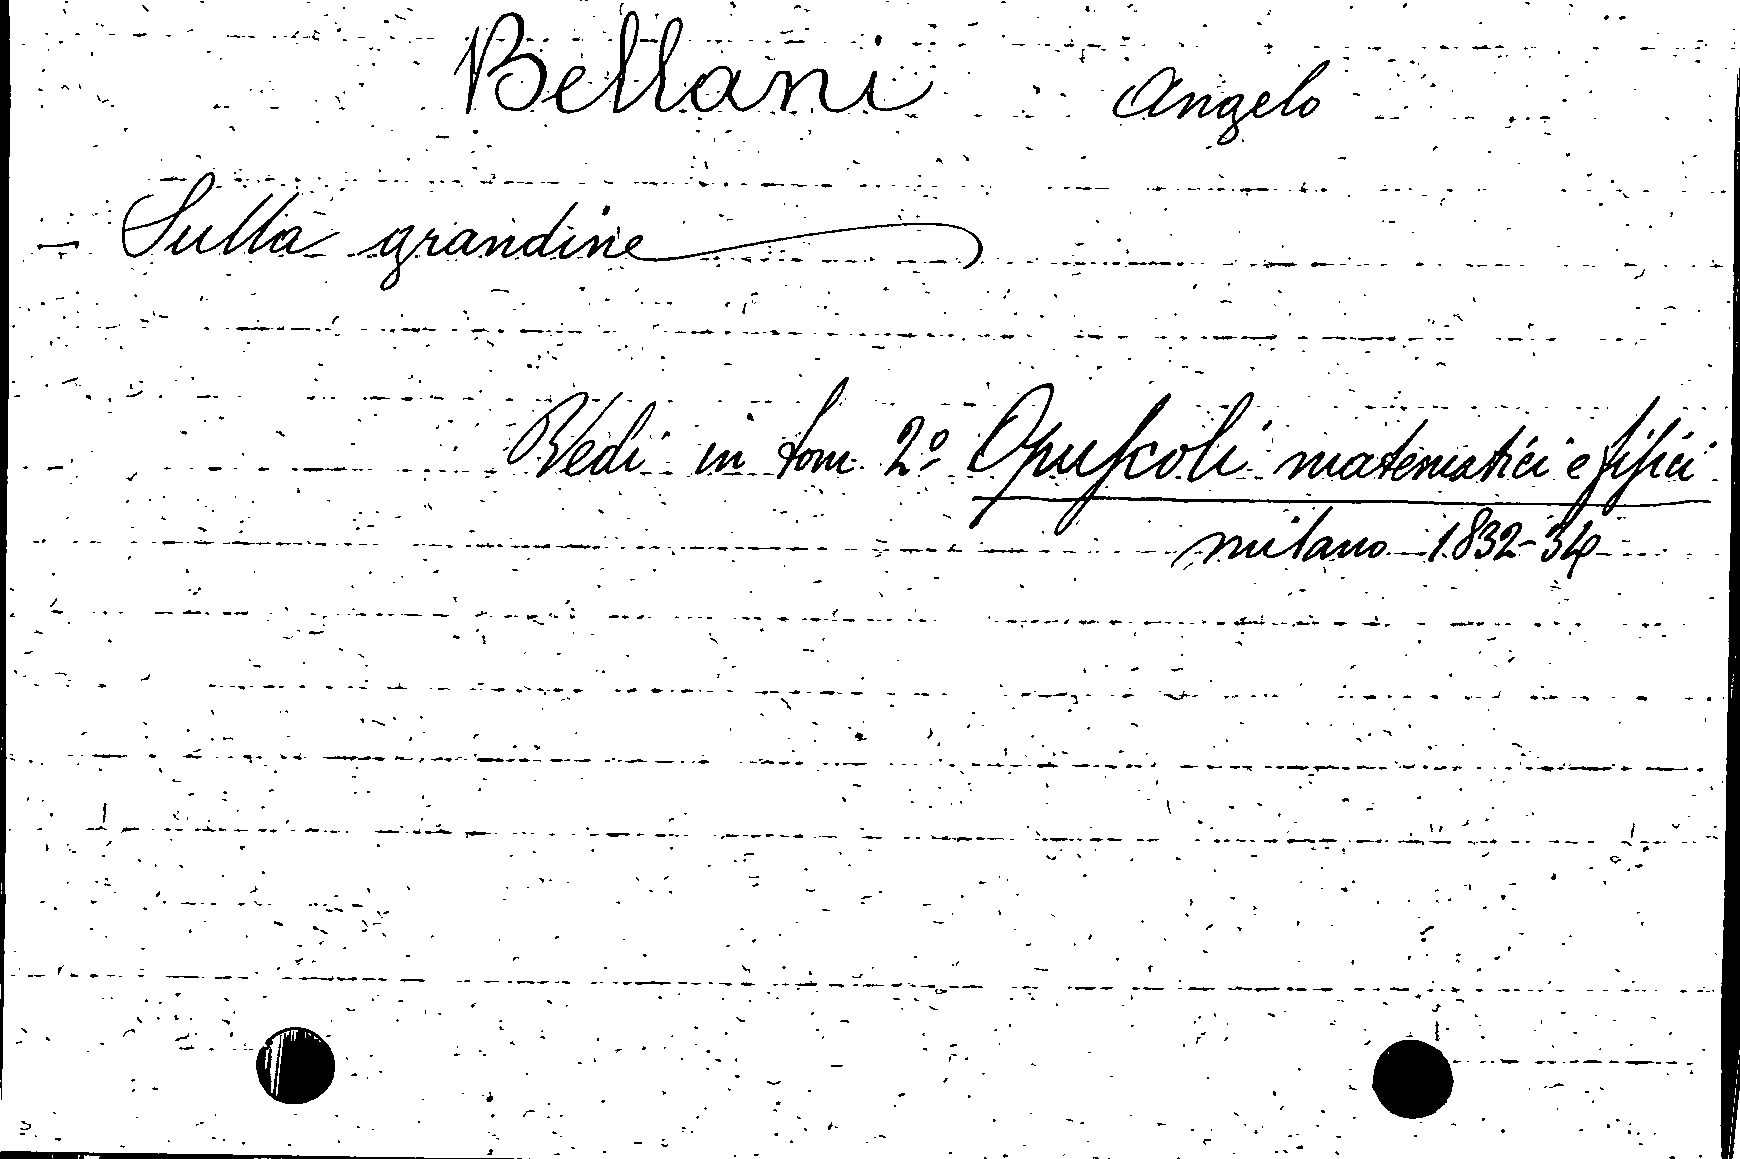 Bellani Angelo
- Sulla grandine
Vedi in tom. 2º Opuſcoli matematici e fiſici
Milano 1832-34